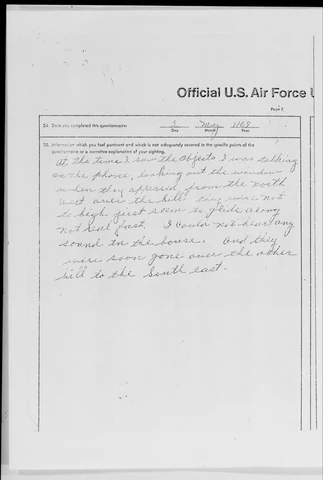 Official U.S. Air Force U
Page 5
34. Date you completed this questionnaire:
2 May 1968
Day Month Year
35. Information which you feel pertinent and which is not adequately covered in the specific points of the
questionnaire or a narrative explanation of your sighting.
At the time I saw the Objects I was talking
on the phone, looking out the window
when they appeared from the north
west over the hill. they were not
to high just seem to glide along
not real fast. I could not hear any
sound in the house. And they
were soon gone over the other
hill to the South east.